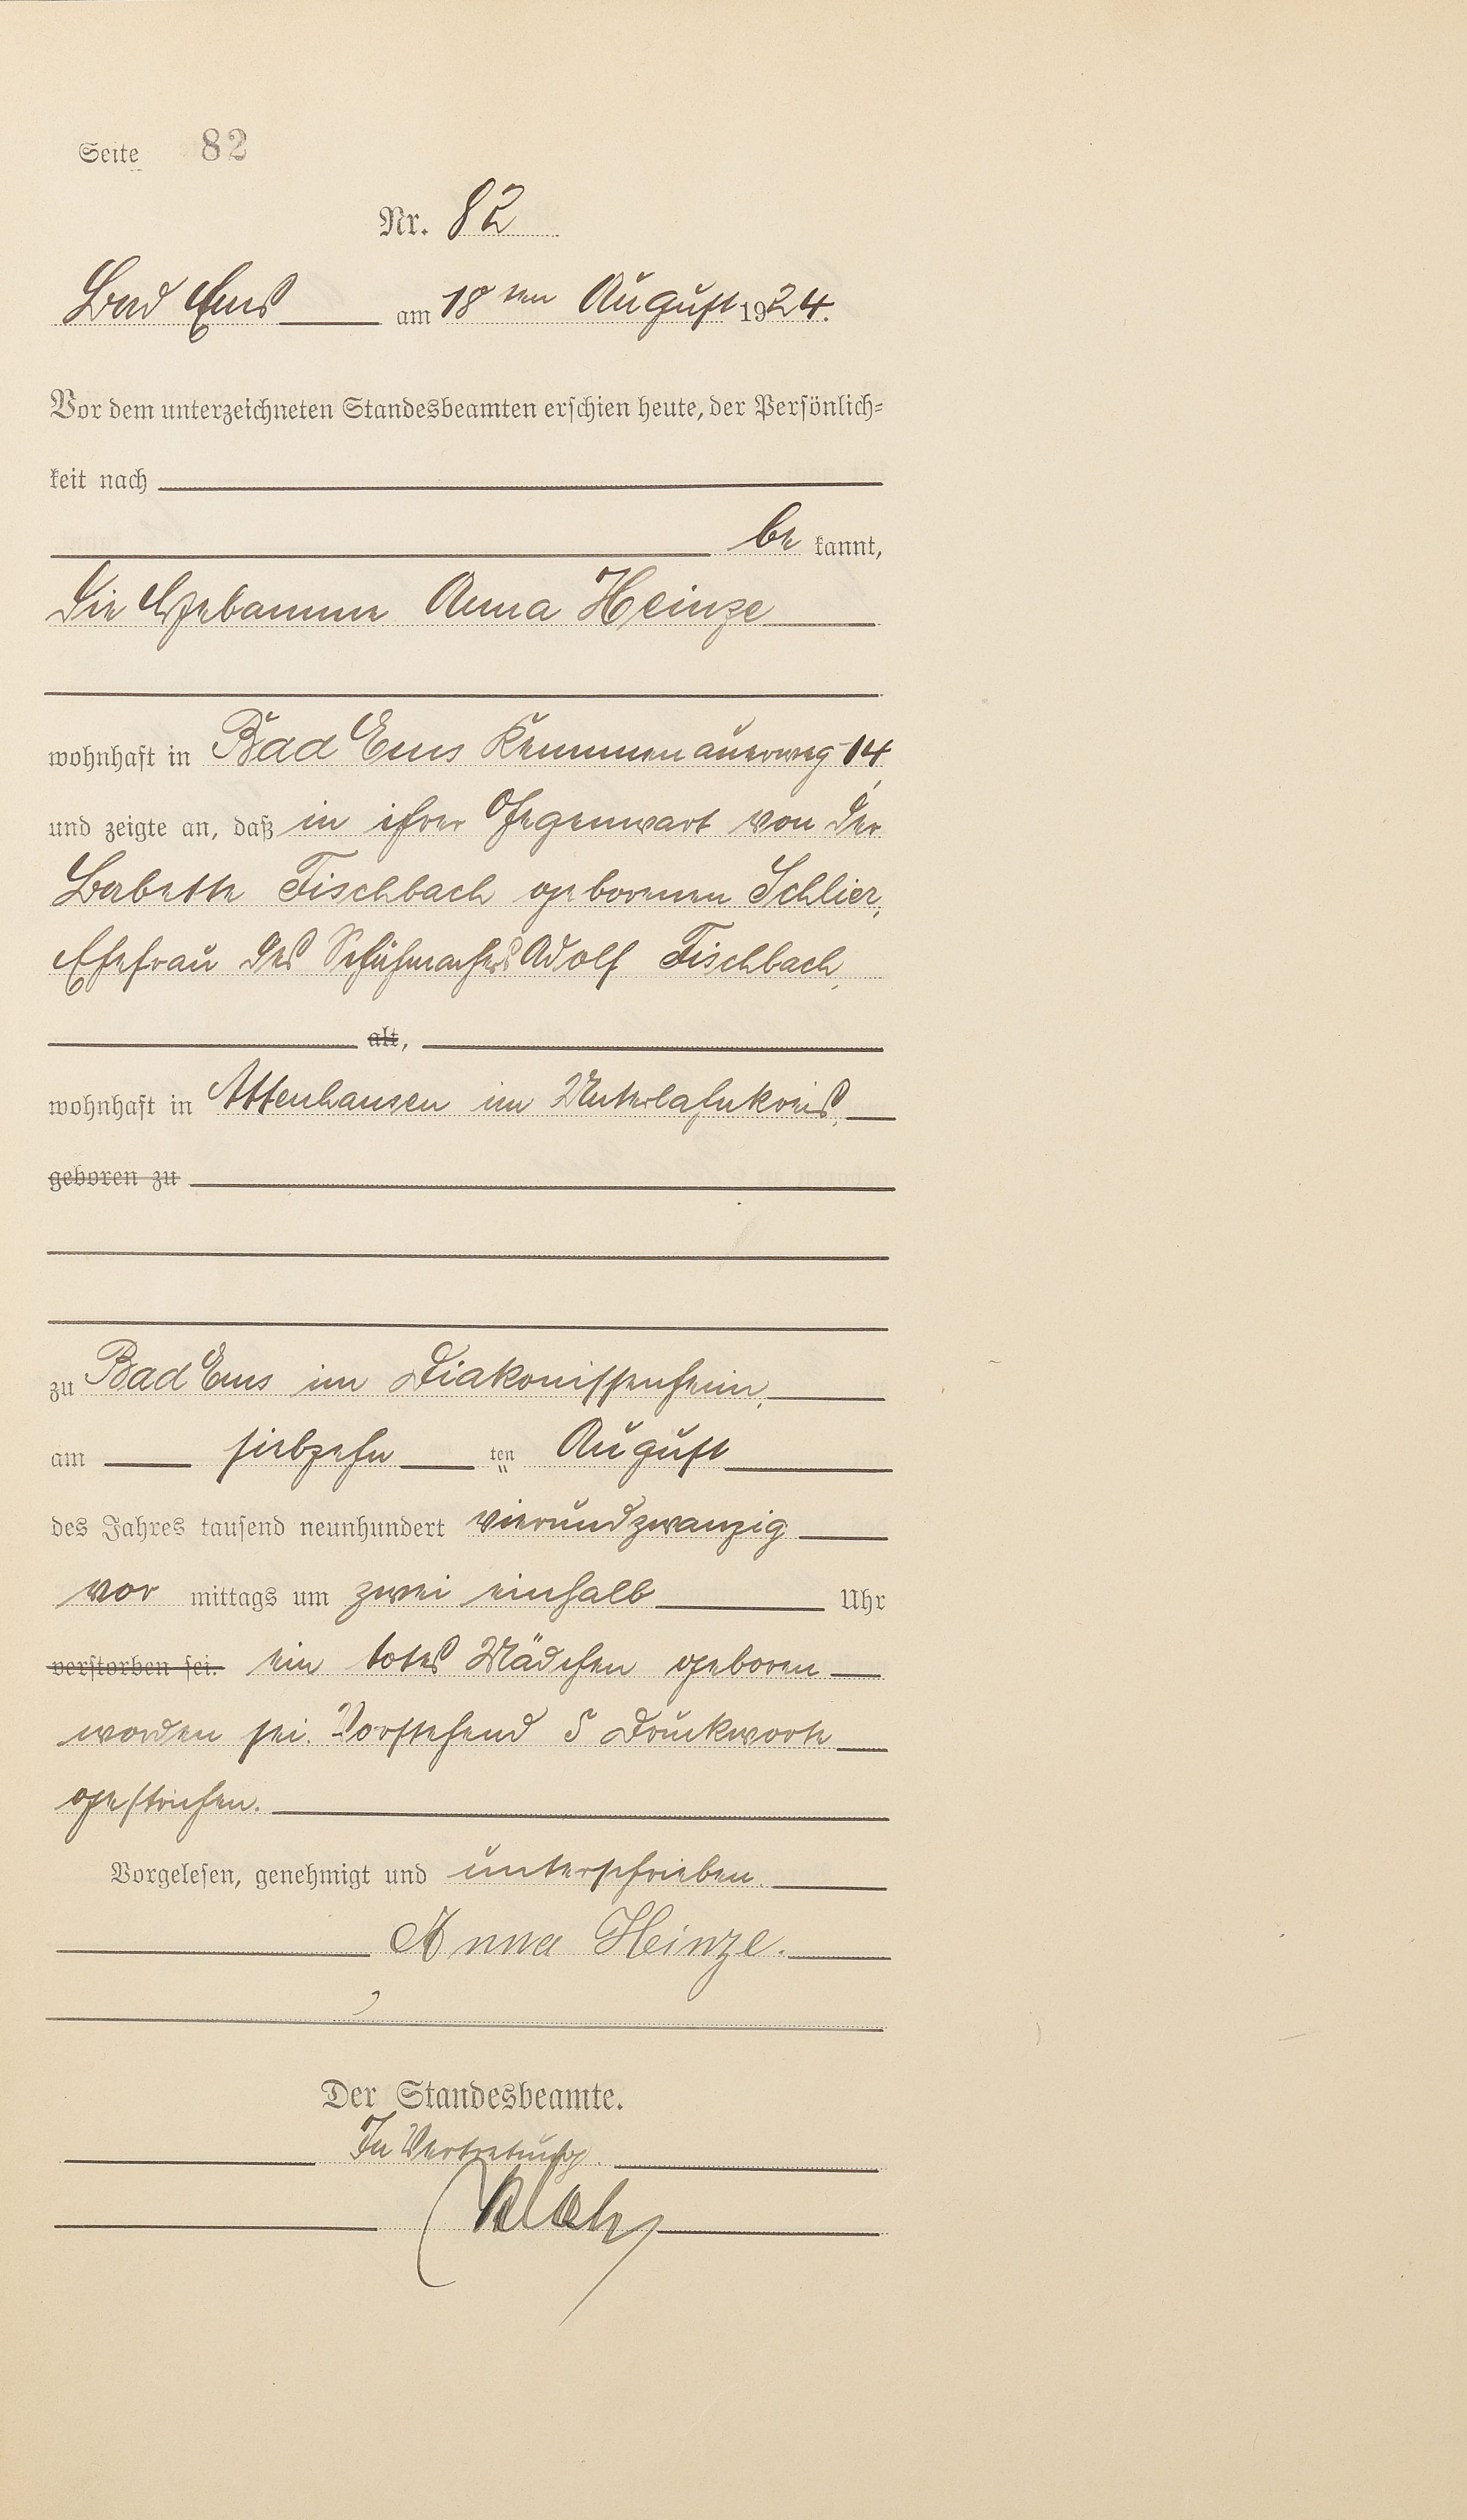 Seite 82
Nr. 82
Bad Ems am 18ten August 1924.
Vor dem unterzeichneten Standesbeamten erschien heute, der Persönlich-
keit nach
be kannt,
die Hebamme Anna Heinze
wohnhaft in Bad Ems Kemmenauerweg 14,
und zeigte an, daß in ihrer Gegenwart von der
Babette Fischbach geborenen Schlier,
Ehefrau des Schuhmachers Adolf Fischbach,
alt,
wohnhaft in Attenhausen im Unterlahnkreis,
geboren zu
zu Bad Ems im Diakonissenheim,
am siebzehn ten August
des Jahres tausend neunhundert vierundzwanzig
vor mittags um zwei einhalb Uhr
verstorben sei. ein totes Mädchen geboren
worden sei. Vorstehend 5 Druckworte
gestrichen.
Vorgelesen, genehmigt und unterschrieben.
Anna Heinze.
Der Standesbeamte.
In Vertretung.